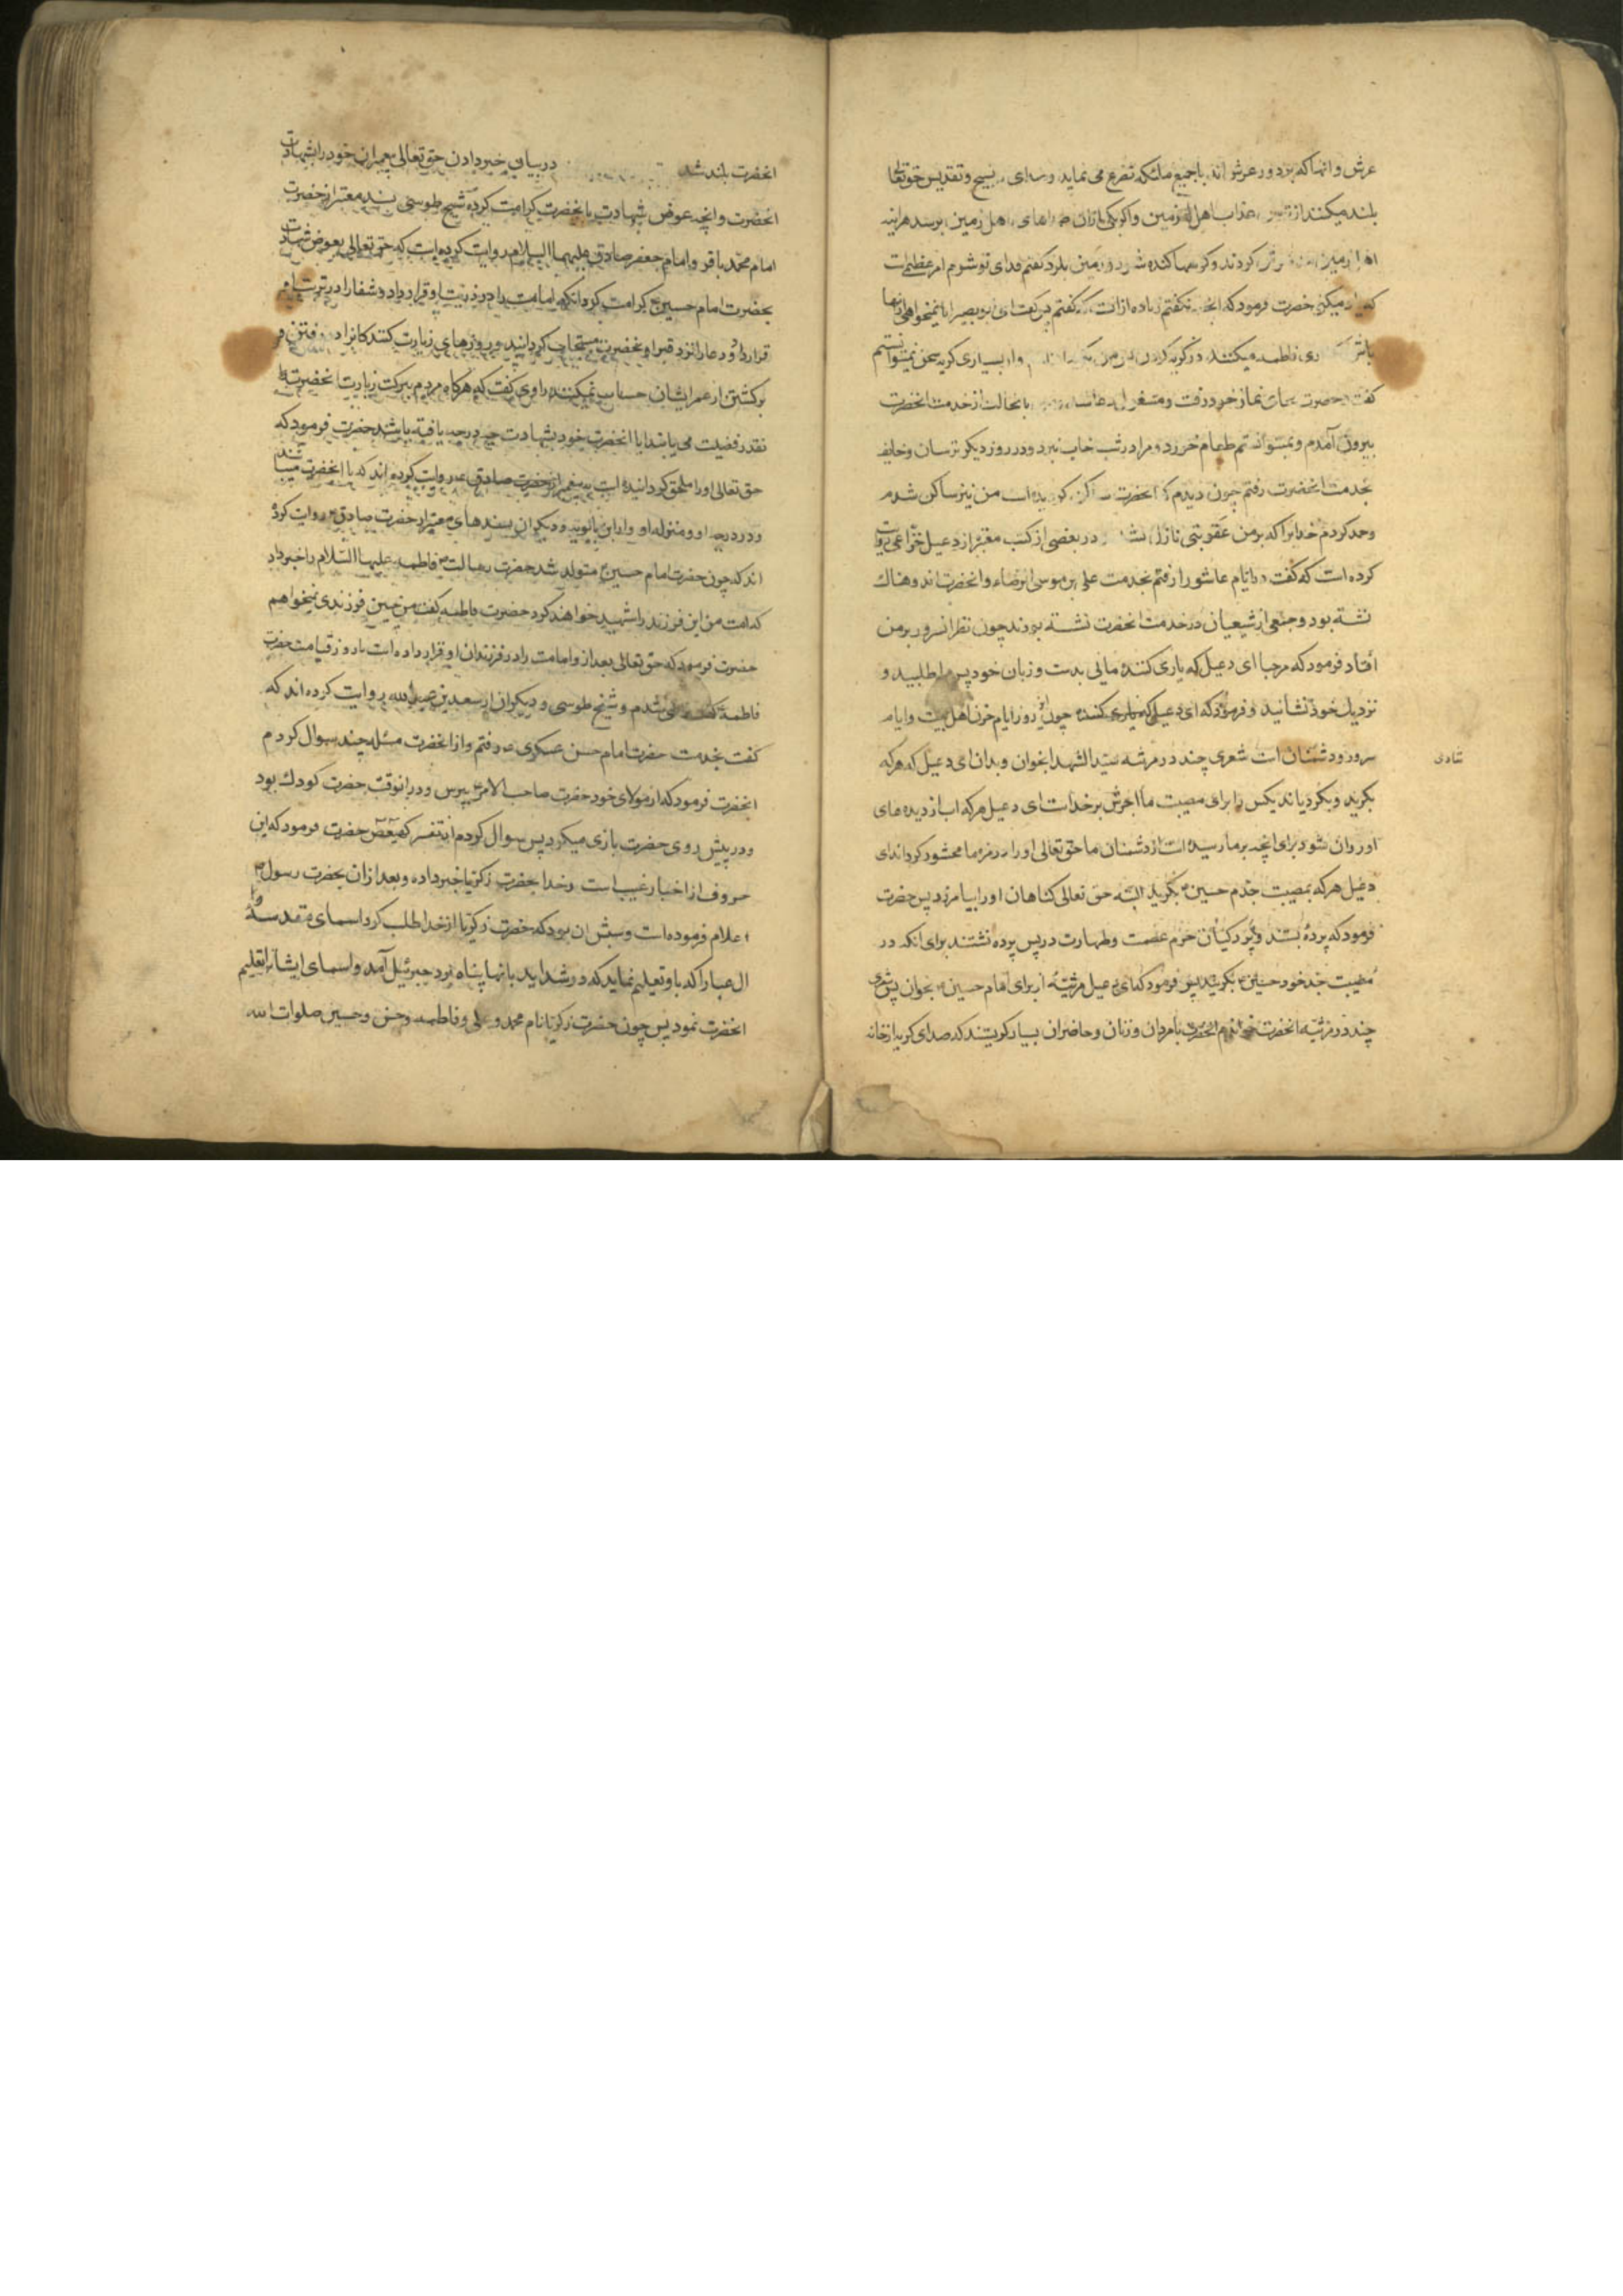 عرش و انها که بر دور عرش اند با جمیع ملئکه تضرع می نماید و تسبیح و تقدیس حقتعالی
بلند میکنند از عذاب اهل زمین و اکر یکی از ان های اهل زمین برسد هراینه
کردند و کوهها کنده شود و زمین بلرزد کفتم فدای تو شوم این امر عظیم است
که میکنی حضرت فرمود که انچه نکفتم زیاده از انست که کفتم پس کفت ای ابو بصیر ایا نمیخواهی از انها
باشی که یاری فاطمه میکنند در کریه کردن پس من و از بسیاری کریه سخن نمیتوانستم
کفت حضرت بجای نماز خود رفت و مشغول دعا شد بانحالت از خدمت انحضرت
بیرون آمدم و نمیتوانستم طعام خورد و مرا در شب خاب نبرد و در روز دیکر ترسان و خایف
بخدمت انحضرت رفتم چون دیدم که انحضرت ساکن کردیده است من نیز ساکن شدم
و حمد کردم خدایرا که بر من عقوبتی نازل نشد در بعضی از کتب معتبر از دعبل خزاعی روایت
کرده است که کفت در ایام عاشورا رفتم بخدمت علی بن موسی الرضاء و انحضرت اندوهناک
نشسته بود و جمعی از شیعیان در خدمت انحضرت نشسته بودند چون نظر انسرور بر من
افتاد فرمود که مرحبا ای دعبل که یاری کننده مائی بدست و زبان خود پس مرا طلبید و
نزدیک خود نشانید و فرمود که ای دعبل که یاری کننده چون این روز ایام حزن اهل بیت و ایام
سرور دشمنان است شعری چند در مرثیه سید الشهدا بخوان و بدان ای دعبل که هر که
شادی
بکرید و بکریاند یکس را برای مصیبت ما اجرش بر خداست ای دعبل هر که اب از دیده های
او روان شود برای انچه بر ما رسیده است از دشمنان ما حق تعالی او را در زمره ما محشور کرداند ای
دعبل هر که بمصیبت جدم حسین بکرید البته حق تعالی کناهان او را بیامرزد پس حضرت
فرمود که پرده بستند و پردکیان حرم عصمت و طهارت در پس پرده نشستند برای انکه در
مصیبت جد خود حسین بکریند پس فرمود که ای دعبل مرثیه از برای امام حسین بخوان پس شعری
چند در مرثیه انحضرت خواندم انحضرت با مردان و زنان و حاضران بسیار کریستند که صدای کریه از خانه
انحضرت بلند شد در بیان خبر دادن حق تعالی پیغمبران خود را بشهادت
انحضرت و انچه عوض شهادت بانحضرت کرامت کرده شیخ طوسی بسند معتبر از حضرت
امام محمد باقر و امام جعفر صادق علیهما السلام روایت کرده است که حق تعالی بعوض شهادت
بحضرت امام حسین ع کرامت کرد انکه امامت را در ذریت او قرار داد و شفا را در تربت او
قرار داد و دعا را نزد قبر او مستجاب کردانید و روزهای زیارت کنندکانرا در رفتن و
برکشتن از عمر ایشان حساب نمیکنند راوی کفت که هرکاه مردم ببرکت زیارت انحضرت
نقدر فضیلت می یابند ایا انحضرت خود بشهادت چه درجه یافته باشد حضرت فرمود که
حق تعالی او را ملحق کردانیده است به پیغمبر از حضرت صادق ع روایت کرده اند که با انحضرت میباشد
و در درجه او و منزله او و ابن بابویه و دیکران بسندهای معتبر از حضرت صادق روایت کرده
اند که چون حضرت امام حسین ع متولد شد حضرت رسالت فاطمه علیها السلام را خبر داد
که امت من این فرزند را شهید خواهند کرد حضرت فاطمه کفت من چنین فرزندی نمیخواهم
حضرت فرمود که حق تعالی بعد از و امامت را در فرزندان او قرار داده است تا روز قیامت حضرت
فاطمه کفت راضی شدم و شیخ طوسی و دیکران از سعد بن عبد الله روایت کرده اند که
کفت بخدمت حضرت امام حسن عسکری ع رفتم و از انحضرت مسئله چند سوال کردم
انحضرت فرمود که از مولای خود حضرت صاحب الامر بپرس و در انوقت حضرت کودک بود
و در پیش روی حضرت بازی میکرد پس سوال کردم از تفسیر کهیعص حضرت فرمود که این
حروف از اخبار غیب است و خدا بحضرت زکریا خبر داده و بعد از ان بحضرت رسول
اعلام فرموده است و سببش ان بود که حضرت زکریا از خدا طلب کرد اسمای مقدسه
ال عبا را که باو تعلیم نماید که در شداید بانها پناه برد جبرئیل آمد و اسمای ایشانرا تعلیم
انحضرت نمود پس چون حضرت زکریا نام محمد و علی و فاطمه و حسن و حسین صلوات الله